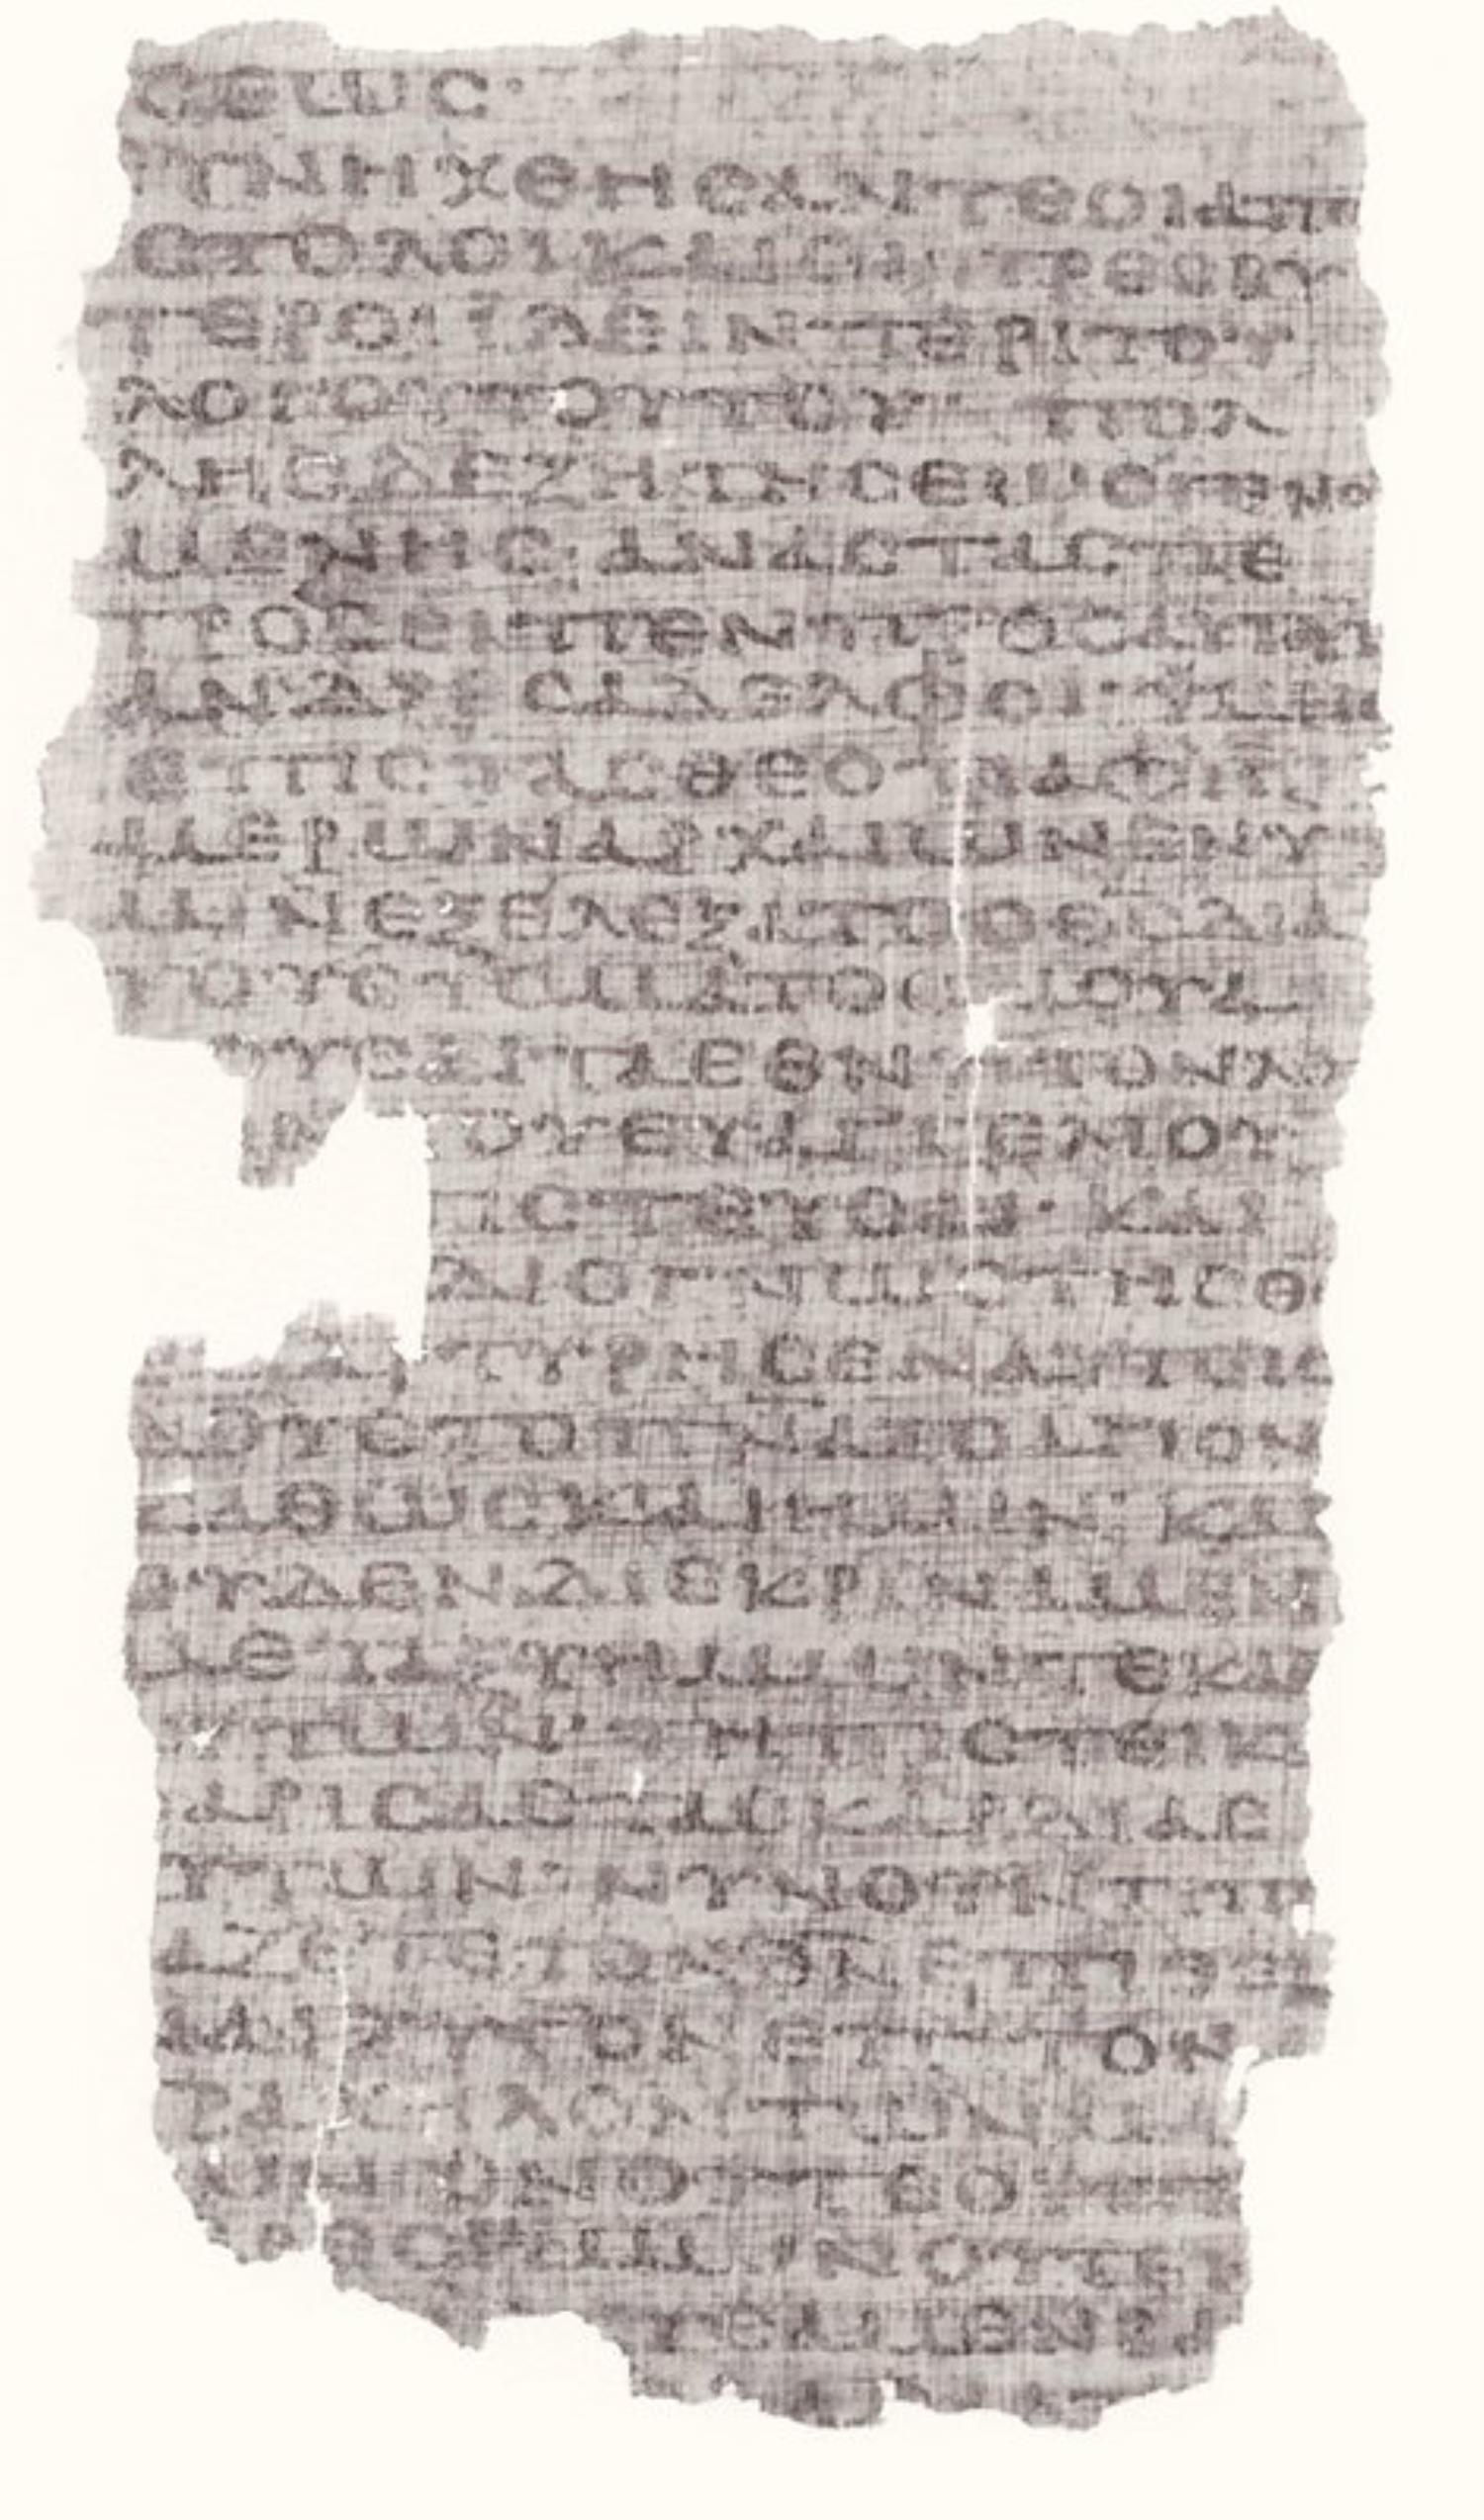 ϹΕΩϹ·
ϹΥΝΗΧΘΗϹΑΝΤΕΟΙΑΠΟ
ϹΤΟΛΟΙΚΑΙΟΙΠΡΕϹΒΥ
ΤΕΡΟΙΙΔΕΙΝΠΕΡΙΤΟΥ
ΛΟΓΟΥΤΟΥΤΟΥ· ΠΟΛ
ΛΗϹΔΕΖΗΤΗϹΕΩϹΓΕΝΟ
ΜΕΝΗϹ ΑΝΑϹΤΑϹΠΕ
ΤΡΟϹΕΙΠΕΝΠΡΟϹΑΥΤΟΥϹ
ΑΝΔΡΕϹΑΔΕΛΦΟΙ·ΥΜΕΙϹ
ΕΠΙϹΤΑϹΘΕΟΤΙΑΦΗ
ΜΕΡΩΝΑΡΧΑΙΩΝΕΝΥ
ΜΙΝΕΞΕΛΕΞΑΤΟΟΘϹΔΙΑ
ΤΟΥϹΤΟΜΑΤΟϹΜΟΥΑ
ΟΥϹΑΙΤΑΕΘΝΗΤΟΝΛΟ
ΟΥΕΥΑΓΓΕΛΙΟΥ
ΠΙϹΤΕΥϹΑΙ· ΚΑΙ
ΔΙΟΓΝΩϹΤΗϹΘ
ΤΥΡΗϹΕΝΑΥΤΟΙϹ
ΔΟΥϹΤΟΠΝΑΤΟΑΓΙΟΝ
ΚΑΘΩϹΚΑΙΗΜΙΝ· ΚΑΙ
ΟΥΔΕΝΔΙΕΚΡΙΝΑΜΕΝ
ΜΕΤΑΞΥΗΜΩΝΤΕΚΑΙ
ΥΤΩΝ·ΤΗΠΙϹΤΕΙΚ
ΑΡΙϹΑϹΤΑϹΚΑΡΔΙΑϹ
ΥΤΩΝ· ΝΥΝΟΥΝΤΙΠΙΡ
ΑΖΕΤΕΤΟΝΘΝΕΠΙΘΕΙ
ΝΑΙΖΥΓΟΝΕΠΙΤΟΝ
ΤΡΑΧΗΛΟΝΤΩΝΜΑ
ΘΗΤΩΝΟΝΟΥΤΕΟΙ
ΡΕϹΗΜΩΝΟΥΤΕ
ΥϹΑΜΕΝΒΑ